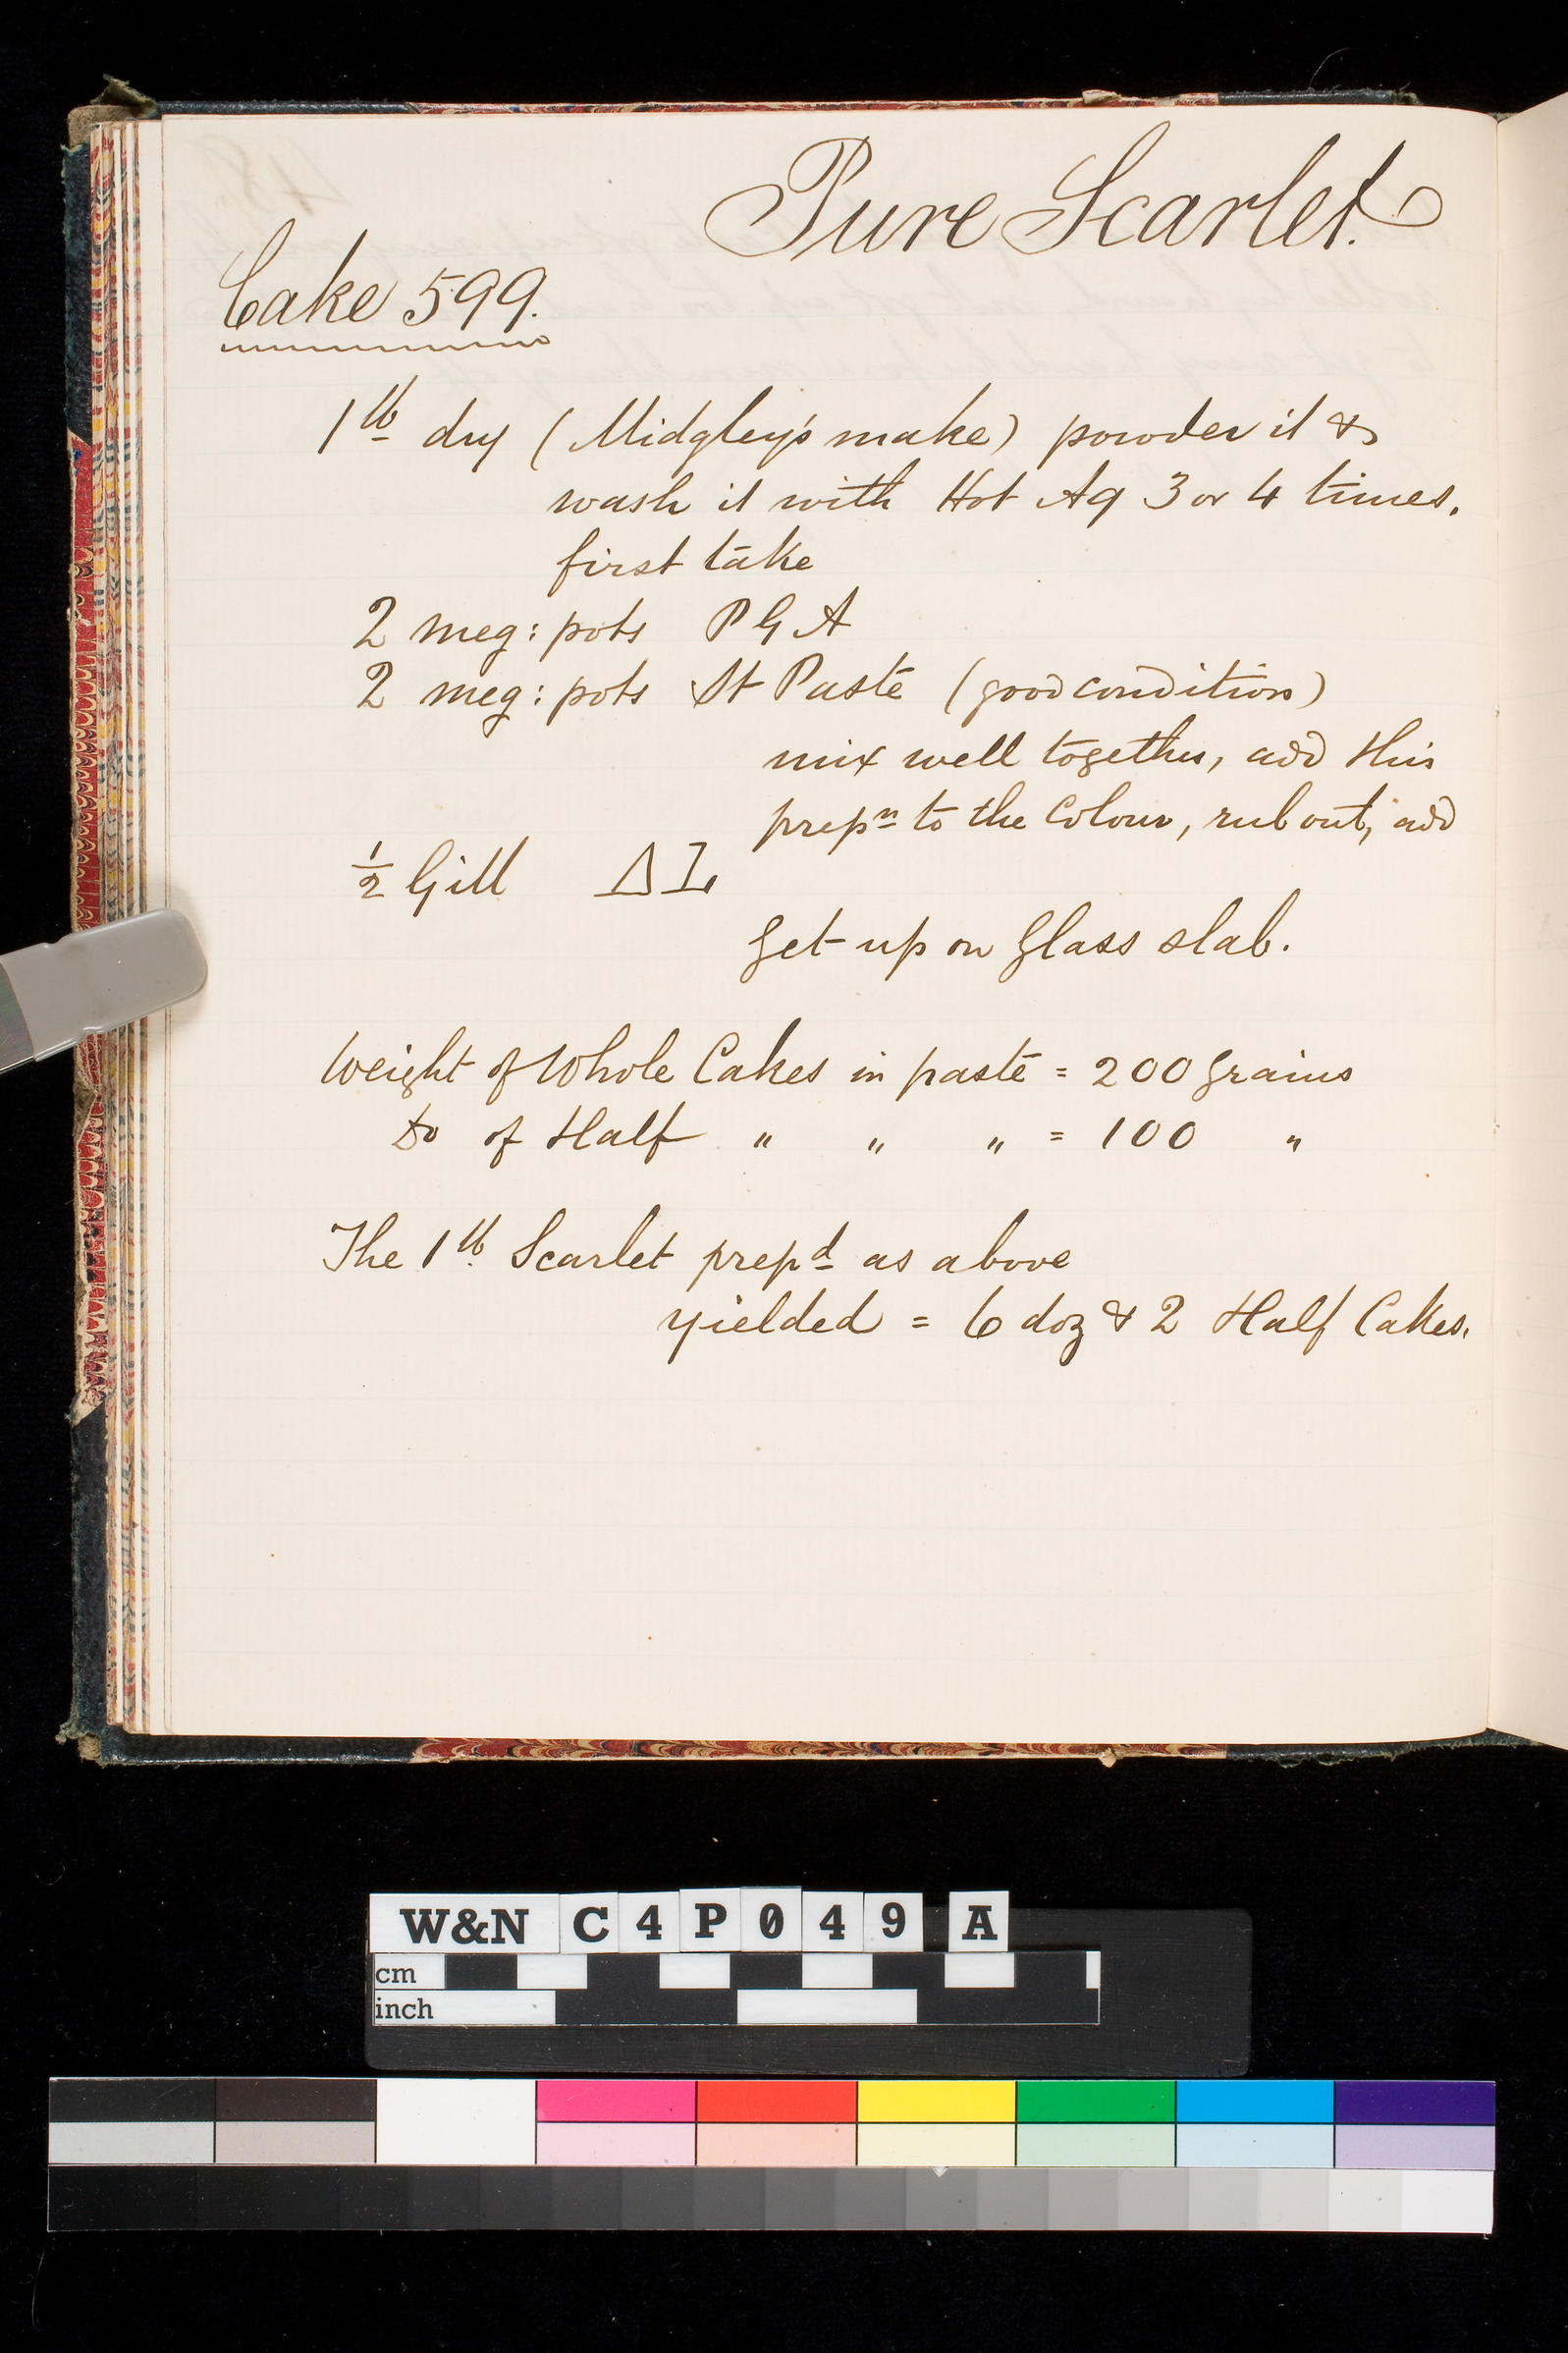 Pure Scarlet.
Cake 599.
1 lb dry (Midgley's make) powder it &
wash it with Hot Aq 3 or 4 times.
first take
2 meg: pots P G A
2 meg: pots St Paste (good condition)
mix well together, add this
prepn to the Colour, rub out, add
½ Gill Δ
get up on Glass slab.
Weight of Whole Cakes in paste = 200 grains
Do of Half " " " = 100 "
The 1 lb Scarlet prepd as above
yielded = 6 doz & 2 Half Cakes.
W&N C4P049 A
cm
inch